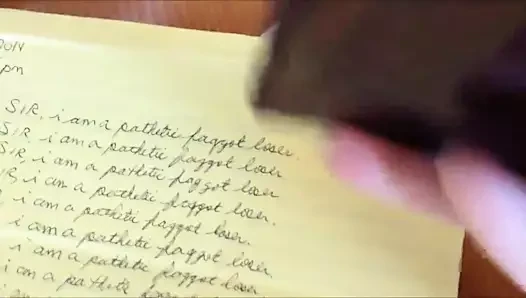 pm
SIR, i am a pathetic faggot loser.
SIR, i am a pathetic faggot loser
SIR, i am a pathetic faggot loser
i am a pathetic faggot loser.
i am a pathetic faggot loser.
i am a pathetic faggot loser.
i am a pathetic faggot loser
i am a pathetic